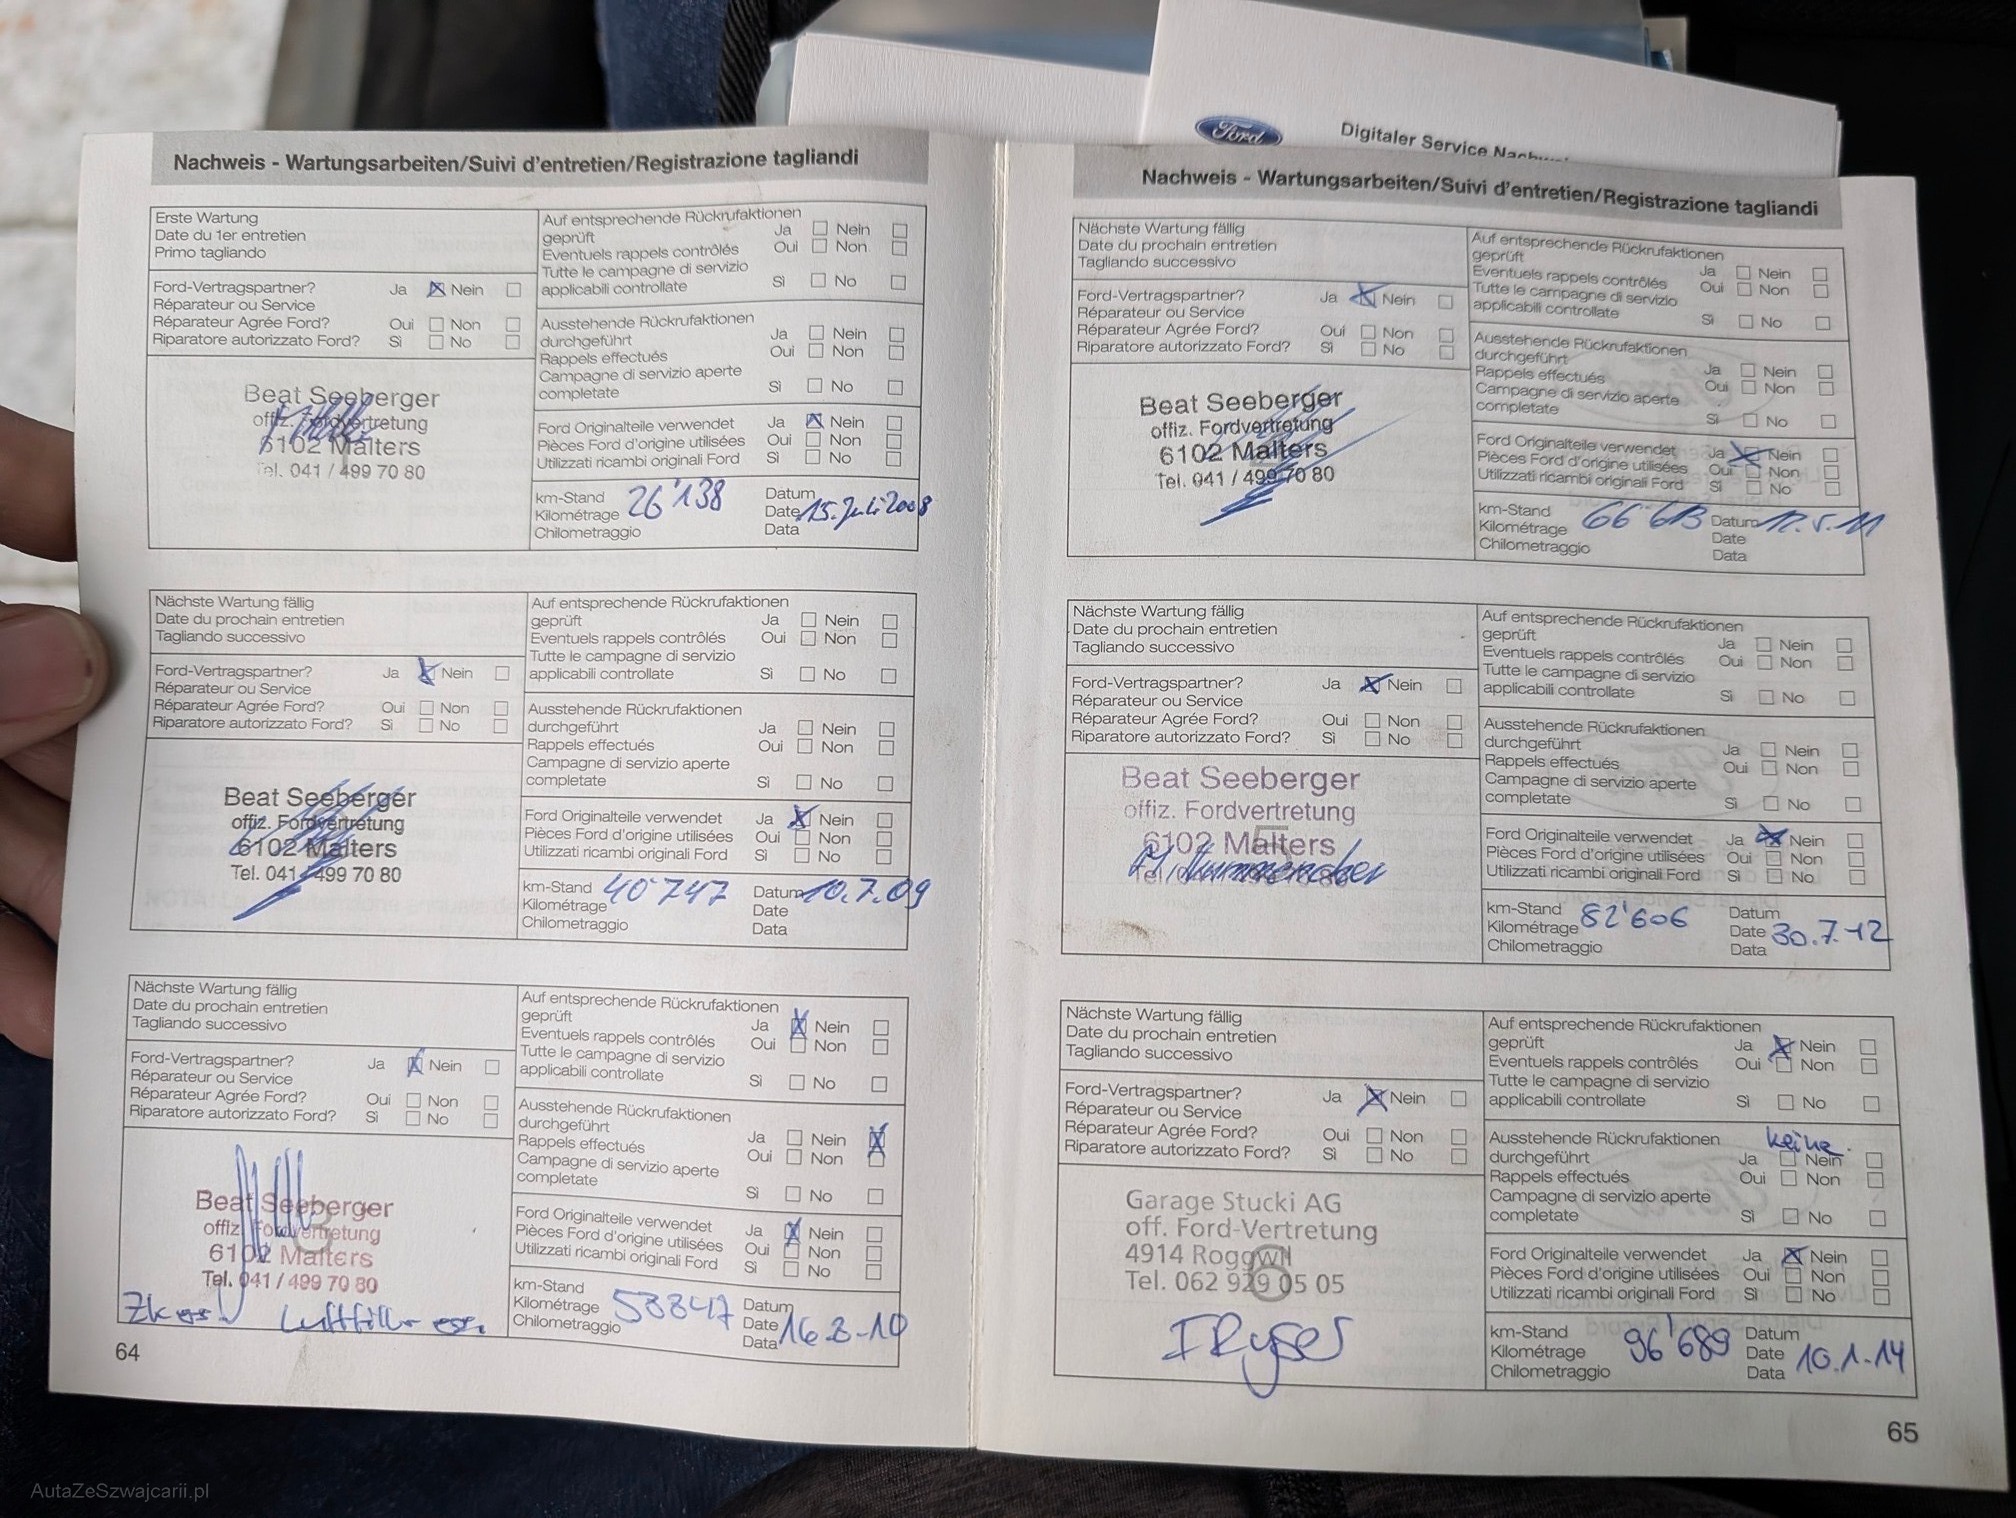 Ford
Digitaler Service Nachw
Nachweis - Wartungsarbeiten/Suivi d'entretien/Registrazione tagliandi
Erste Wartung
Date du 1er entretien
Primo tagliando
Ford-Vertragspartner? Ja Nein
Réparateur ou Service
Réparateur Agrée Ford? Oui Non
Riparatore autorizzato Ford? Sì No
Beat Seeberger
offiz. Fordvertretung
6102 Malters
Tel. 041 / 499 70 80
Auf entsprechende Rückrufaktionen
geprüft Ja Nein
Eventuels rappels contrôlés Oui Non
Tutte le campagne di servizio
applicabili controllate Sì No
Ausstehende Rückrufaktionen
durchgeführt Ja Nein
Rappels effectués Oui Non
Campagne di servizio aperte
completate Sì No
Ford Originalteile verwendet Ja Nein
Pièces Ford d'origine utilisées Oui Non
Utilizzati ricambi originali Ford Sì No
km-Stand 26'138 Datum
Kilométrage Date 15. Juli 2008
Chilometraggio Data
Nächste Wartung fällig
Date du prochain entretien
Tagliando successivo
Ford-Vertragspartner? Ja Nein
Réparateur ou Service
Réparateur Agrée Ford? Oui Non
Riparatore autorizzato Ford? Sì No
Beat Seeberger
offiz. Fordvertretung
6102 Malters
Tel. 041 / 499 70 80
Auf entsprechende Rückrufaktionen
geprüft Ja Nein
Eventuels rappels contrôlés Oui Non
Tutte le campagne di servizio
applicabili controllate Sì No
Ausstehende Rückrufaktionen
durchgeführt Ja Nein
Rappels effectués Oui Non
Campagne di servizio aperte
completate Sì No
Ford Originalteile verwendet Ja Nein
Pièces Ford d'origine utilisées Oui Non
Utilizzati ricambi originali Ford Sì No
km-Stand 40'747 Datum 10.7.09
Kilométrage Date
Chilometraggio Data
Nächste Wartung fällig
Date du prochain entretien
Tagliando successivo
Ford-Vertragspartner? Ja Nein
Réparateur ou Service
Réparateur Agrée Ford? Oui Non
Riparatore autorizzato Ford? Sì No
3
Beat Seeberger
offiz. Fordvertretung
6102 Malters
Tel. 041 / 499 70 80
Auf entsprechende Rückrufaktionen
geprüft Ja Nein
Eventuels rappels contrôlés Oui Non
Tutte le campagne di servizio
applicabili controllate Sì No
Ausstehende Rückrufaktionen
durchgeführt Ja Nein
Rappels effectués Oui Non
Campagne di servizio aperte
completate Sì No
Ford Originalteile verwendet Ja Nein
Pièces Ford d'origine utilisées Oui Non
Utilizzati ricambi originali Ford Sì No
km-Stand Datum
Kilométrage 53847 Date
Chilometraggio Data 16.8.10
64
Nachweis - Wartungsarbeiten/Suivi d'entretien/Registrazione tagliandi
Nächste Wartung fällig
Date du prochain entretien
Tagliando successivo
Ford-Vertragspartner? Ja Nein
Réparateur ou Service
Réparateur Agrée Ford? Oui Non
Riparatore autorizzato Ford? Sì No
Beat Seeberger
offiz. Fordvertretung
6102 Malters
Tel. 041 / 499 70 80
Auf entsprechende Rückrufaktionen
geprüft Ja Nein
Eventuels rappels contrôlés Oui Non
Tutte le campagne di servizio
applicabili controllate Sì No
Ausstehende Rückrufaktionen
durchgeführt Ja Nein
Rappels effectués Oui Non
Campagne di servizio aperte
completate Sì No
Ford Originalteile verwendet Ja Nein
Pièces Ford d'origine utilisées Oui Non
Utilizzati ricambi originali Ford Sì No
km-Stand 66'613 Datum 12.5.11
Kilométrage Date
Chilometraggio Data
Nächste Wartung fällig
Date du prochain entretien
Tagliando successivo
Ford-Vertragspartner? Ja Nein
Réparateur ou Service
Réparateur Agrée Ford? Oui Non
Riparatore autorizzato Ford? Sì No
5
Beat Seeberger
offiz. Fordvertretung
6102 Malters
Auf entsprechende Rückrufaktionen
geprüft Ja Nein
Eventuels rappels contrôlés Oui Non
Tutte le campagne di servizio
applicabili controllate Sì No
Ausstehende Rückrufaktionen
durchgeführt Ja Nein
Rappels effectués Oui Non
Campagne di servizio aperte
completate Sì No
Ford Originalteile verwendet Ja Nein
Pièces Ford d'origine utilisées Oui Non
Utilizzati ricambi originali Ford Sì No
km-Stand 82'606 Datum
Kilométrage Date 30.7.12
Chilometraggio Data
Nächste Wartung fällig
Date du prochain entretien
Tagliando successivo
Ford-Vertragspartner? Ja Nein
Réparateur ou Service
Réparateur Agrée Ford? Oui Non
Riparatore autorizzato Ford? Sì No
6
Garage Stucki AG
off. Ford-Vertretung
4914 Roggwil
Tel. 062 929 05 05
I Ryser
Auf entsprechende Rückrufaktionen
geprüft Ja Nein
Eventuels rappels contrôlés Oui Non
Tutte le campagne di servizio
applicabili controllate Sì No
Ausstehende Rückrufaktionen keine.
durchgeführt Ja Nein
Rappels effectués Oui Non
Campagne di servizio aperte
completate Sì No
Ford Originalteile verwendet Ja Nein
Pièces Ford d'origine utilisées Oui Non
Utilizzati ricambi originali Ford Sì No
km-Stand 96'689 Datum
Kilométrage Date 10.1.14
Chilometraggio Data
65
AutaZeSzwajcarii.pl